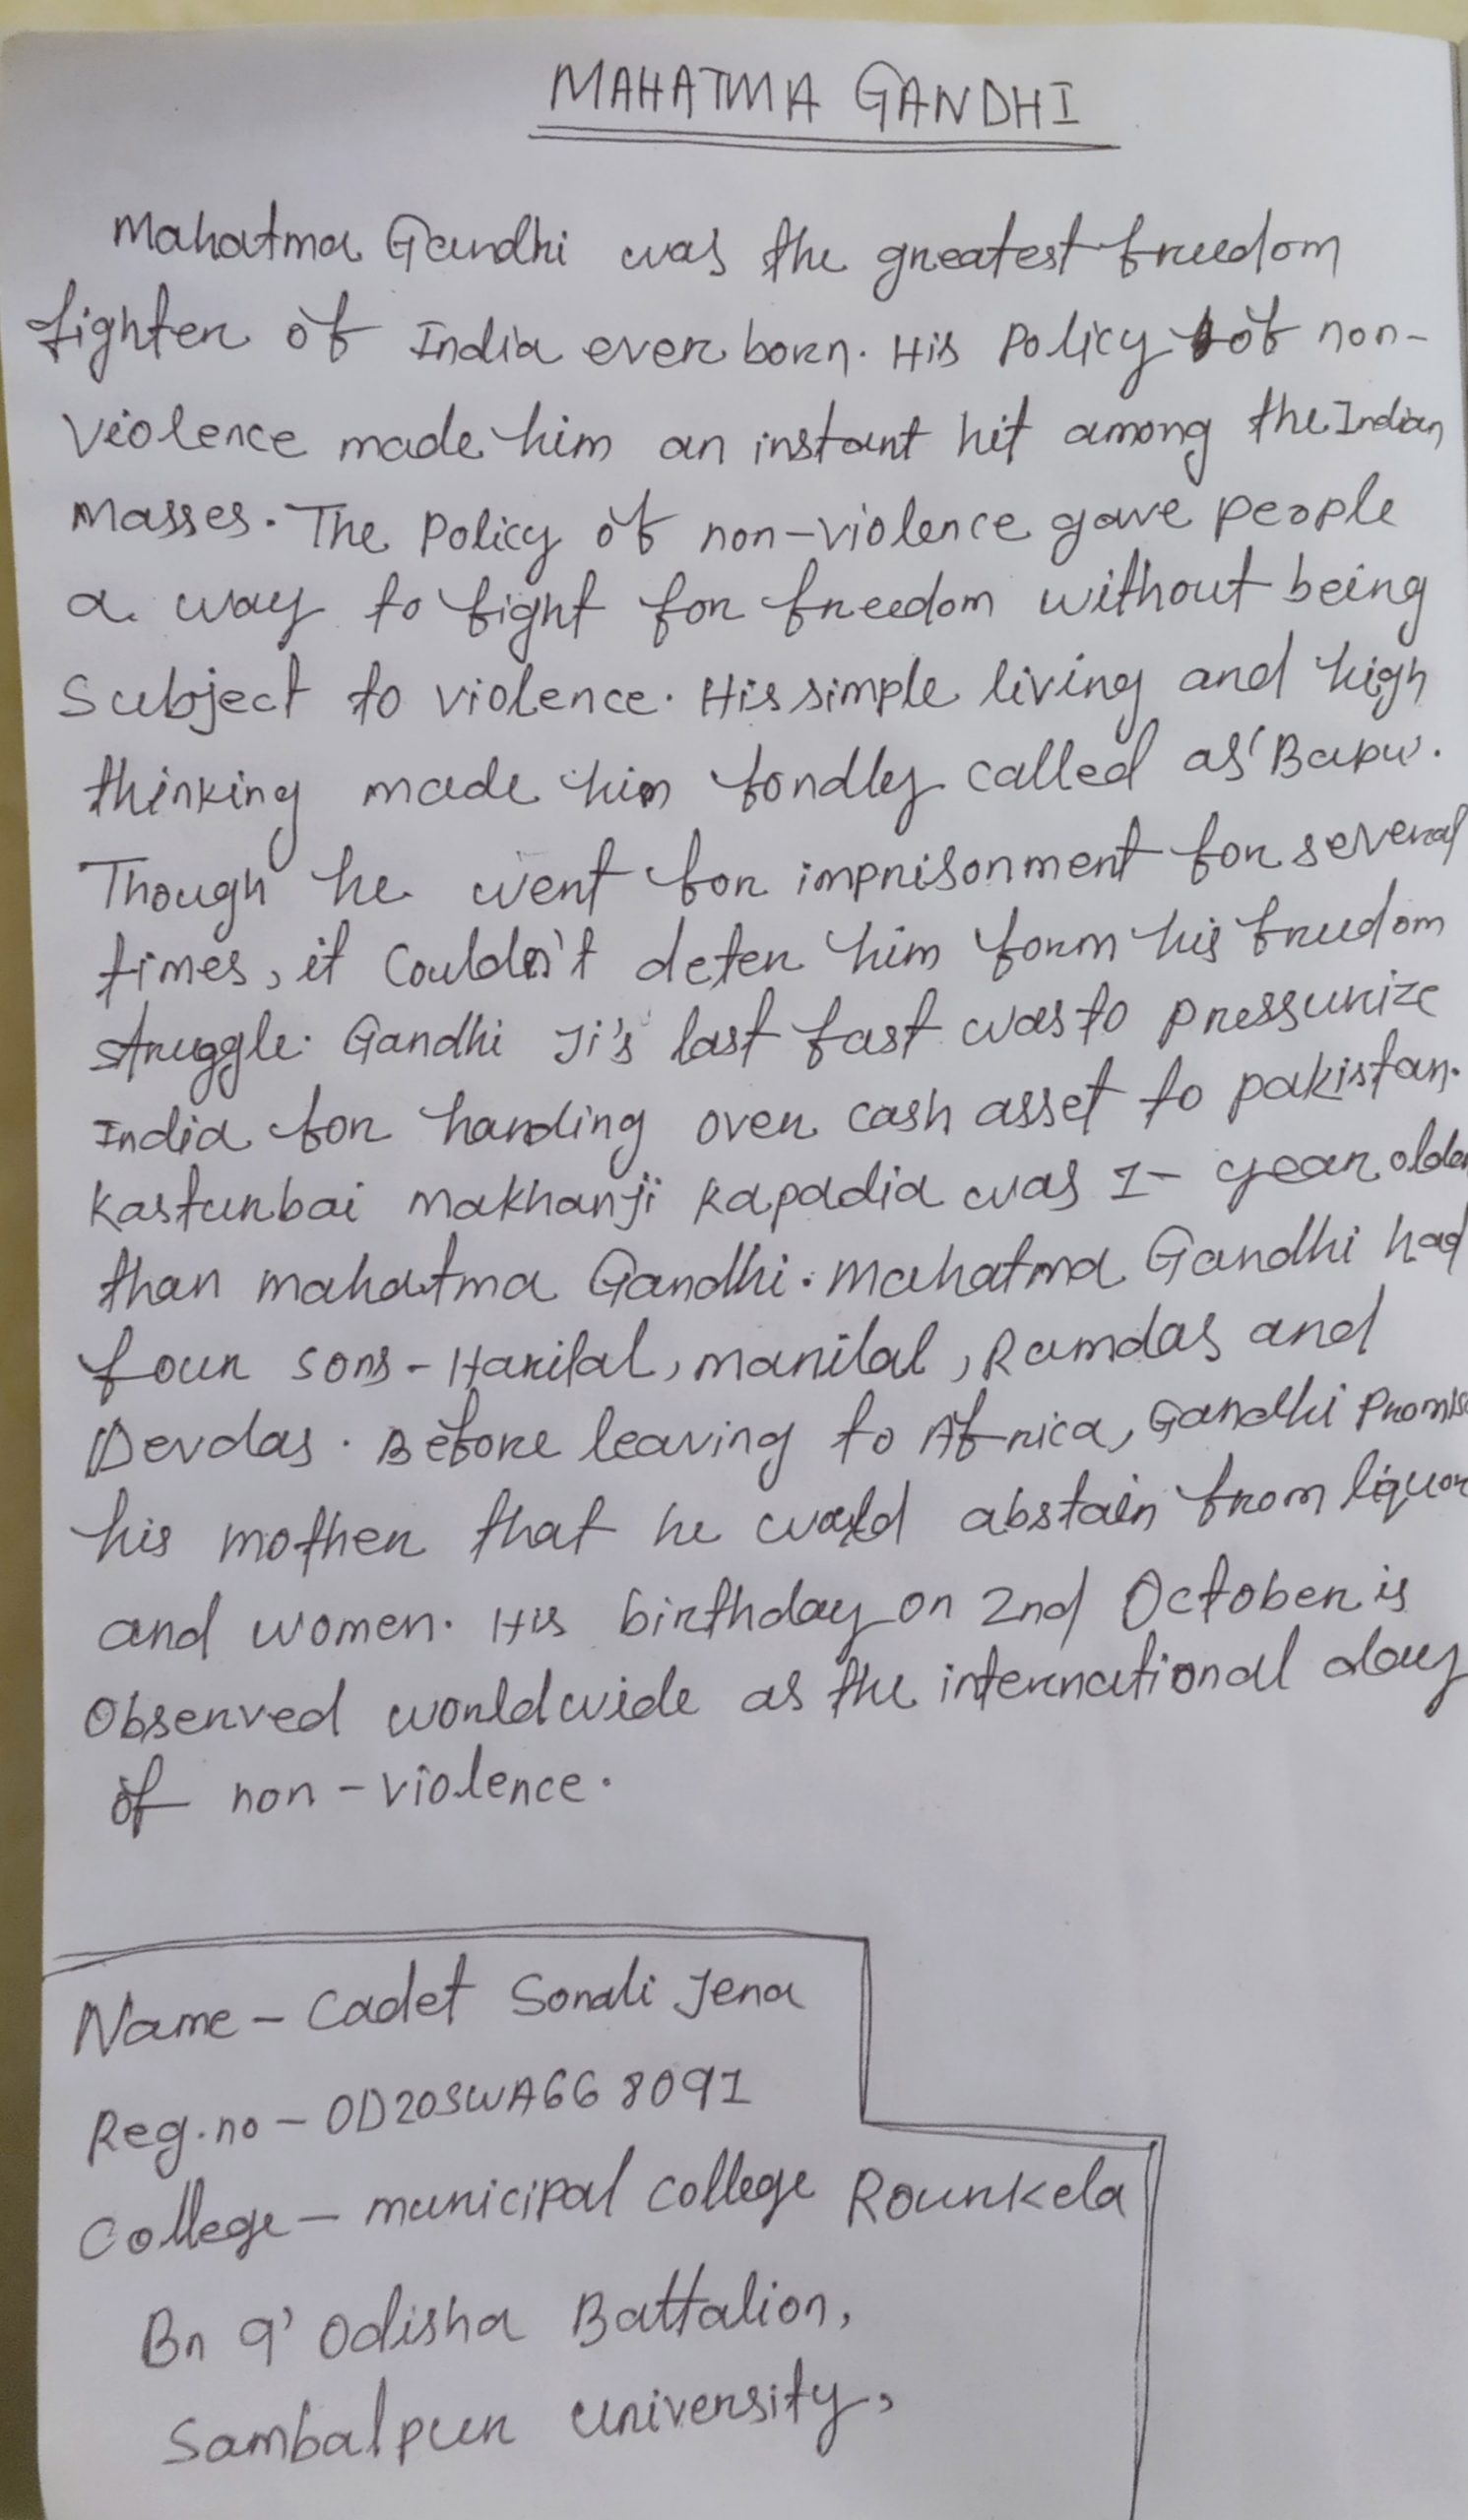 MAHATMA GANDHI
Mahatma Gandhi was the greatest freedom
fighter of India ever born. His policy of non-
violence made him an instant hit among the Indian
masses. The policy of non-violence gave people
a way to fight for freedom without being
Subject to violence. His simple living and high
thinking made him fondly called as 'Bapu'.
Though he went for imprisonment for several
times, it Couldn't deter him form his freedom
struggle. Gandhi Ji's last fast was to pressurize
India for handing over cash asset to pakistan.
Kasturbai makhanji kapadia was 1- year older
than mahatma Gandhi. mahatma Gandhi had
four sons - Harilal, manilal, Ramdas and
Devdas. Before leaving to Africa, Gandhi Promis
his mother that he would abstain from liquor
and women. His birthday on 2nd October is
Observed worldwide as the international day
of non-violence.
Name - Cadet Sonali Jena
Reg.no - OD20SWA668091
College - municipal college Rourkela
Bn 9' Odisha Battalion,
Sambalpur university,